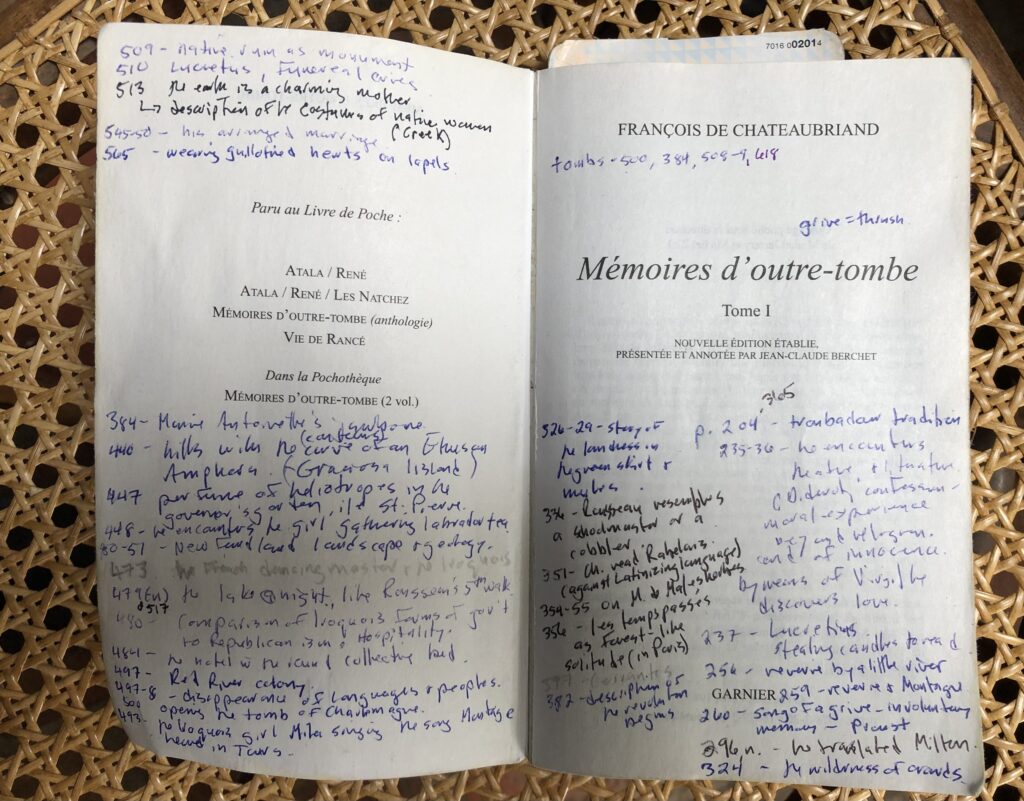 509 - native ruin as monument
510 Lucretius, Funereal
513 the earth is a charming mother
↳ description of the costumes of native women
(Creek)
545-50 - his arranged marriage
565 - wearing guillotined hearts on lapels
Paru au Livre de Poche :
ATALA / RENÉ
ATALA / RENÉ / LES NATCHEZ
MÉMOIRES D'OUTRE-TOMBE (anthologie)
VIE DE RANCÉ
Dans la Pochothèque
MÉMOIRES D'OUTRE-TOMBE (2 vol.)
384 - Marie Antoinette's jawbone
(contours)
440 - hills with the curve of an Etruscan
Amphora. (Graciosa Island)
447 perfume of heliotropes in the
governor's garden, île St. Pierre.
448 - he encounters the girl gathering labrador tea
50-51 - Newfoundland landscape & geology.
473. the French dancing master & the Iroquois
479(n) the lake @ night, like Rousseau's 5th walk
& 517
480 - Comparison of Iroquois forms of gov't
to Republicanism; Hospitality.
484 - the hotel w the round collective bed.
497 - Red River colony.
497-8 - disappearance of languages & peoples.
500 opens the tomb of Charlemagne.
493 - the Iroquois girl Mila singing the song Montaigne
heard in Tours.
7016 002014
FRANÇOIS DE CHATEAUBRIAND
tombs - 500, 384, 508-9, 618
grive = thrush.
Mémoires d'outre-tombe
Tome I
NOUVELLE ÉDITION ÉTABLIE,
PRÉSENTÉE ET ANNOTÉE PAR JEAN-CLAUDE BERCHET
326-29 - story of
the landress in
the green skirt &
376 - Rousseau resembles
a schoolmaster or a
cobbler.
351 - Ch. read Rabelais.
(against Latinizing language)
354-55 on M. de Malesherbes
356 - les temps passés
as forest-like
solitude (in Paris)
382 - description of
the revolution
begins
, 365
p. 204 - troubadour tradition
235-36 - he encounters
theatre & literature
(Diderot) confession -
moral experience
beyond religion.
end of innocence.
by means of Virgil he
discovers love.
237 - Lucretius
stealing candles to read
256 - reverie by a little river
GARNIER
259 - reverie & Montaigne
260 - song of a grive - involuntary
memory - Proust
296n. - he translated Milton.
324 - the wilderness of crowds